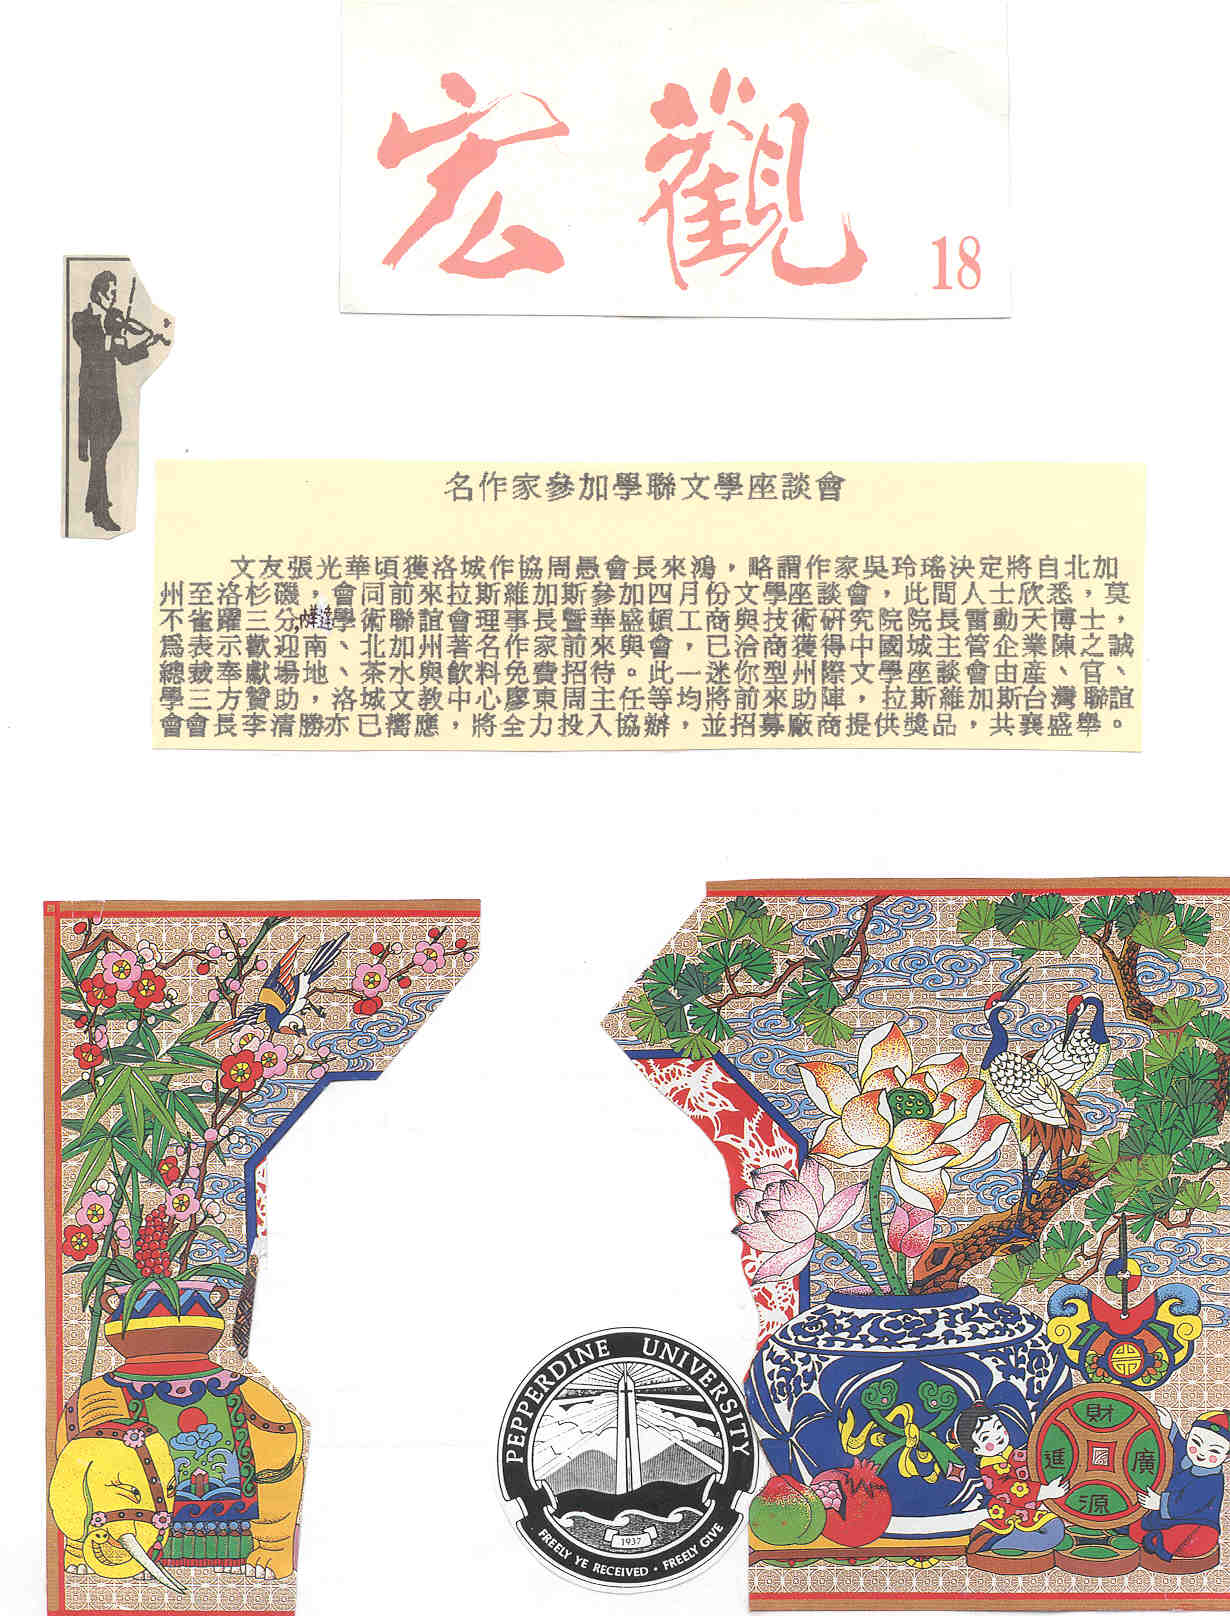 宏觀
18
名作家參加學聯文學座談會
文友張光華頃獲洛城作協周愚會長來鴻，略謂作家吳玲瑤決定將自北加
州至洛杉磯，會同前來拉斯維加斯參加四月份文學座談會，此間人士欣悉，莫
不雀躍三分，學術聯誼會理事長暨華盛頓工商與技術研究院院長雷動天博士，
爲表示歡迎南、北加州著名作家前來與會，已洽商獲得中國城主管企業陳之誠
總裁奉獻場地、茶水與飲料免費招待。此一迷你型州際文學座談會由産、官、
學三方贊助，洛城文教中心廖東周主任等均將前來助陣，拉斯維加斯台灣聯誼
會會長李清勝亦已嚮應，將全力投入協辦，並招募廠商提供獎品，共襄盛舉。
財
進 廣
源
PEPPERDINE UNIVERSITY
1937
FREELY YE RECEIVED • FREELY GIVE